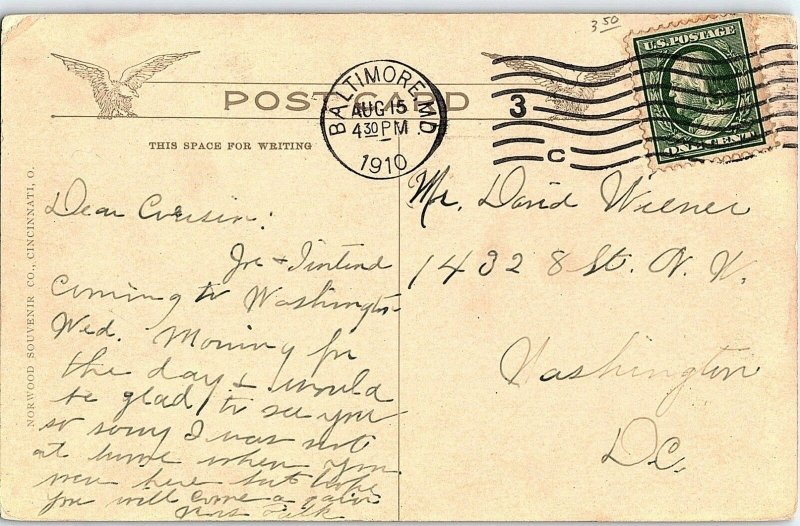 3 50
U.S. POSTAGE
ONE CENT
POST CARD
BALTIMORE, MD.
AUG 15
4 30 PM
1910
3
C
THIS SPACE FOR WRITING
NORWOOD SOUVENIR CO., CINCINNATI, O.
Dear Cousin:
Joe + I intend
coming to Washington
Wed. Morning for
the day & would
be glad to see you
so sorry I was not
at home when you
were here but hope
you will come again
Falk
Mr. David Wiener
1432 8 St. N. W.
Washington
D.C.